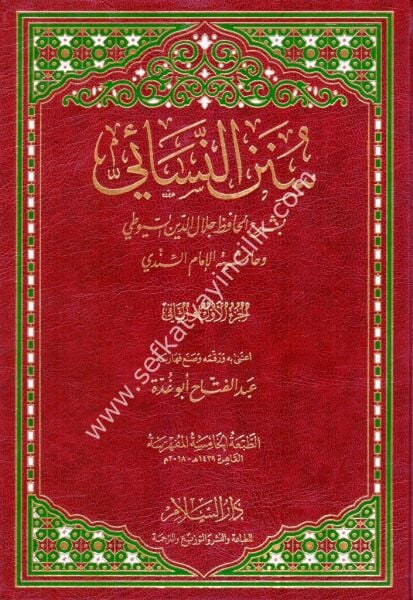 سُنَنُ النَّسَائِيِّ
بشرح الحافظ جلال الدين السيوطي
وحاشية الإمام السندي
الجزء الأول والثاني
اعتنى به ورقمه وصنع فهارسه
عبد الفتاح أبو غدة
الطبعة الخامسة المفهرسة
القاهرة ١٤٣٩هـ - ٢٠١٨م
دار السلام
للطباعة والنشر والتوزيع والترجمة
www.sefkatyayincilik.com